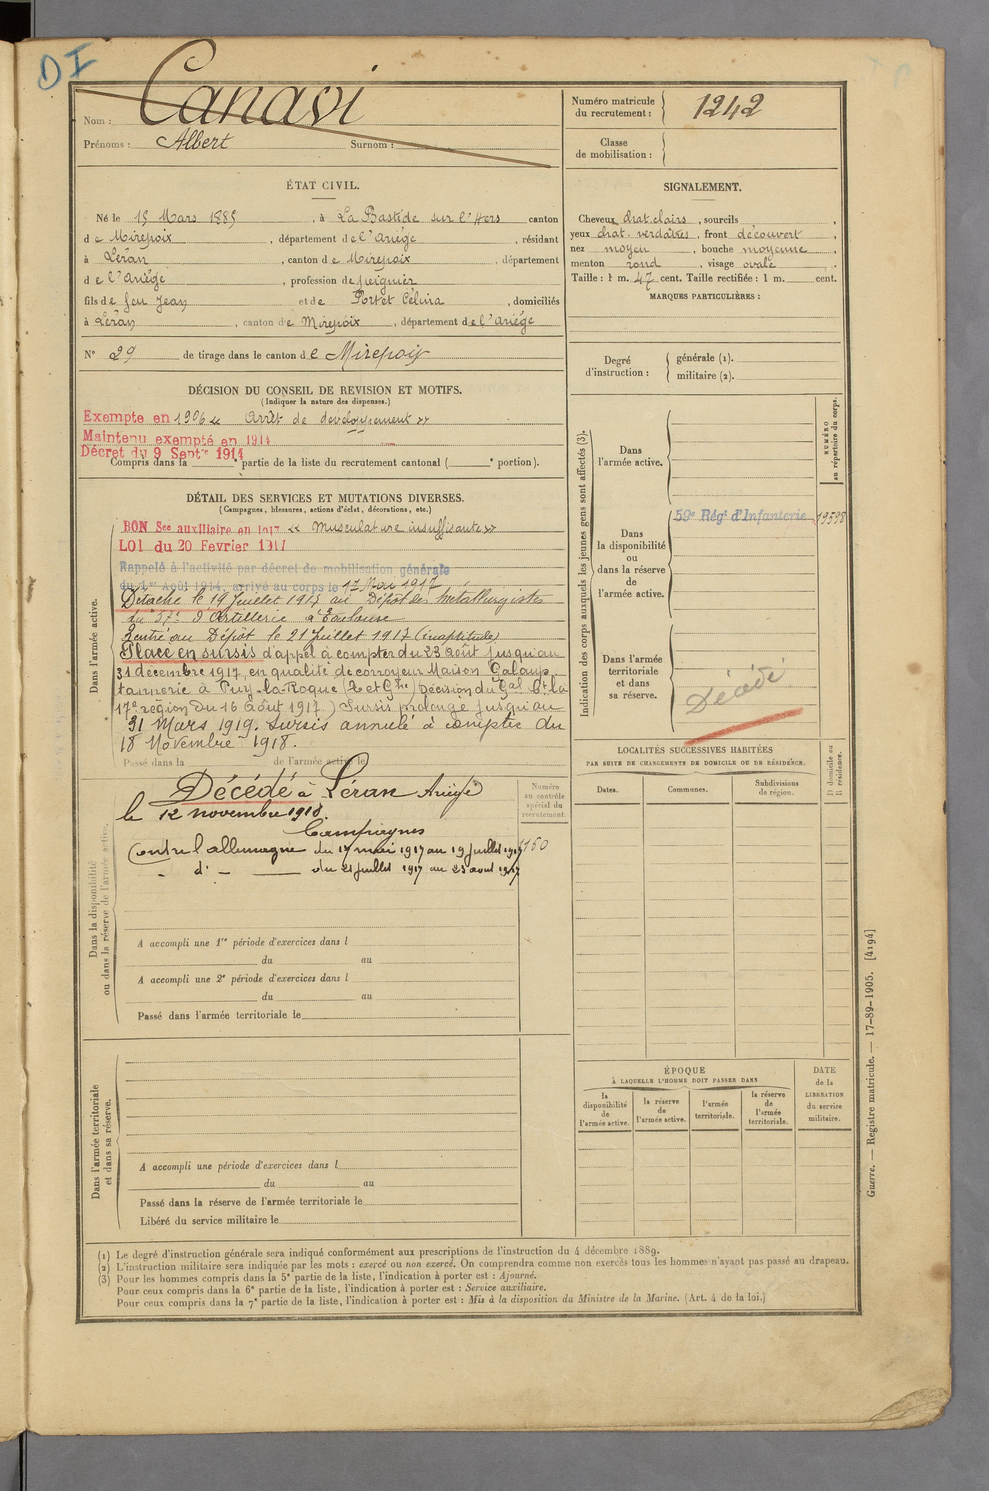 DI
Nom : Canavi
Prénoms : Albert Surnom :
Numéro matricule du recrutement : 1242
Classe de mobilisation :
ÉTAT CIVIL.
Né le 15 Mars 1885, à La Bastide sur l'Hers canton
de Mirepoix, département de l'Ariège, résidant
à Léran, canton de Mirepoix, département
de l'Ariège, profession de peignier
fils de feu Jean et de Portet Célina, domiciliés
à Léran, canton de Mirepoix, département de l'Ariège
N° 29 de tirage dans le canton de Mirepoix
SIGNALEMENT.
Cheveux chat. clairs, sourcils ,
yeux chat. verdâtres, front découvert,
nez moyen, bouche moyenne,
menton rond, visage ovale
Taille : 1 m. 47 cent. Taille rectifiée : 1 m. cent.
MARQUES PARTICULIÈRES :
Degré d'instruction : générale (1).
militaire (2).
DÉCISION DU CONSEIL DE REVISION ET MOTIFS.
(Indiquer la nature des dispenses.)
Exempté en 1906 « Arrêt de developpement »
Maintenu exempté en 1914
Décret du 9 Septre 1914
Compris dans la e partie de la liste du recrutement cantonal ( e portion).
DÉTAIL DES SERVICES ET MUTATIONS DIVERSES.
(Campagnes, blessures, actions d'éclat, décorations, etc.)
Dans l'armée active.
BON Sce auxiliaire en 1917 « Musculature insuffisante »
LOI du 20 Fevrier 1917
Rappelé à l'activité par décret de mobilisation générale
du 1er Août 1914, arrivé au corps le 17 Mai 1917
Détaché le 19 Juillet 1917 au Dépôt des métallurgistes
du 57e d'Artillerie à Toulouse
Rentré au Dépôt le 21 Juillet 1917 (inaptitude)
Placé en sursis d'appel à compter du 23 août jusqu'au
31 décembre 1917, en qualité de corroyeur Maison Galoup,
tannerie à Puy-la-Roque (T et Gne) Décision du Gal Ct la
17e région du 16 août 1917) Sursis prolongé jusqu'au
31 Mars 1919. Sursis annulé à compter du
18 Novembre 1918.
Passé dans la de l'armée active le
Dans la disponibilité ou dans la réserve de l'armée active.
Décédé à Léran Ariège
le 12 novembre 1918.
Campagnes
Contre l'allemagne du 17 mai 1917 au 19 juillet 1917
- d° - du 21 juillet 1917 au 23 aout 1917
Numéro au contrôle spécial du recrutement.
1150
A accompli une 1re période d'exercices dans l
du au
A accompli une 2e période d'exercices dans l
du au
Passé dans l'armée territoriale le
Dans l'armée territoriale et dans sa réserve.
A accompli une période d'exercices dans l
du au
Passé dans la réserve de l'armée territoriale le
Libéré du service militaire le
Indication des corps auxquels les jeunes gens sont affectés (3).
NUMÉRO au répertoire du corps.
Dans l'armée active.
Dans la disponibilité ou dans la réserve de l'armée active.
59e Régt d'Infanterie 19598
Dans l'armée territoriale et dans sa réserve.
Décédé
LOCALITÉS SUCCESSIVES HABITÉES
PAR SUITE DE CHANGEMENTS DE DOMICILE OU DE RÉSIDENCE.
Dates. Communes. Subdivisions de région. D domicile ou R résidence.
ÉPOQUE
À LAQUELLE L'HOMME DOIT PASSER DANS
la disponibilité de l'armée active. la réserve de l'armée active. l'armée territoriale. la réserve de l'armée territoriale.
DATE de la LIBÉRATION du service militaire.
Guerre. — Registre matricule. — 17-89-1905. [4194]
(1) Le degré d'instruction générale sera indiqué conformément aux prescriptions de l'instruction du 4 décembre 1889.
(2) L'instruction militaire sera indiquée par les mots : exercé ou non exercé. On comprendra comme non exercés tous les hommes n'ayant pas passé au drapeau.
(3) Pour les hommes compris dans la 5e partie de la liste, l'indication à porter est : Ajourné.
Pour ceux compris dans la 6e partie de la liste, l'indication à porter est : Service auxiliaire.
Pour ceux compris dans la 7e partie de la liste, l'indication à porter est : Mis à la disposition du Ministre de la Marine. (Art. 4 de la loi.)